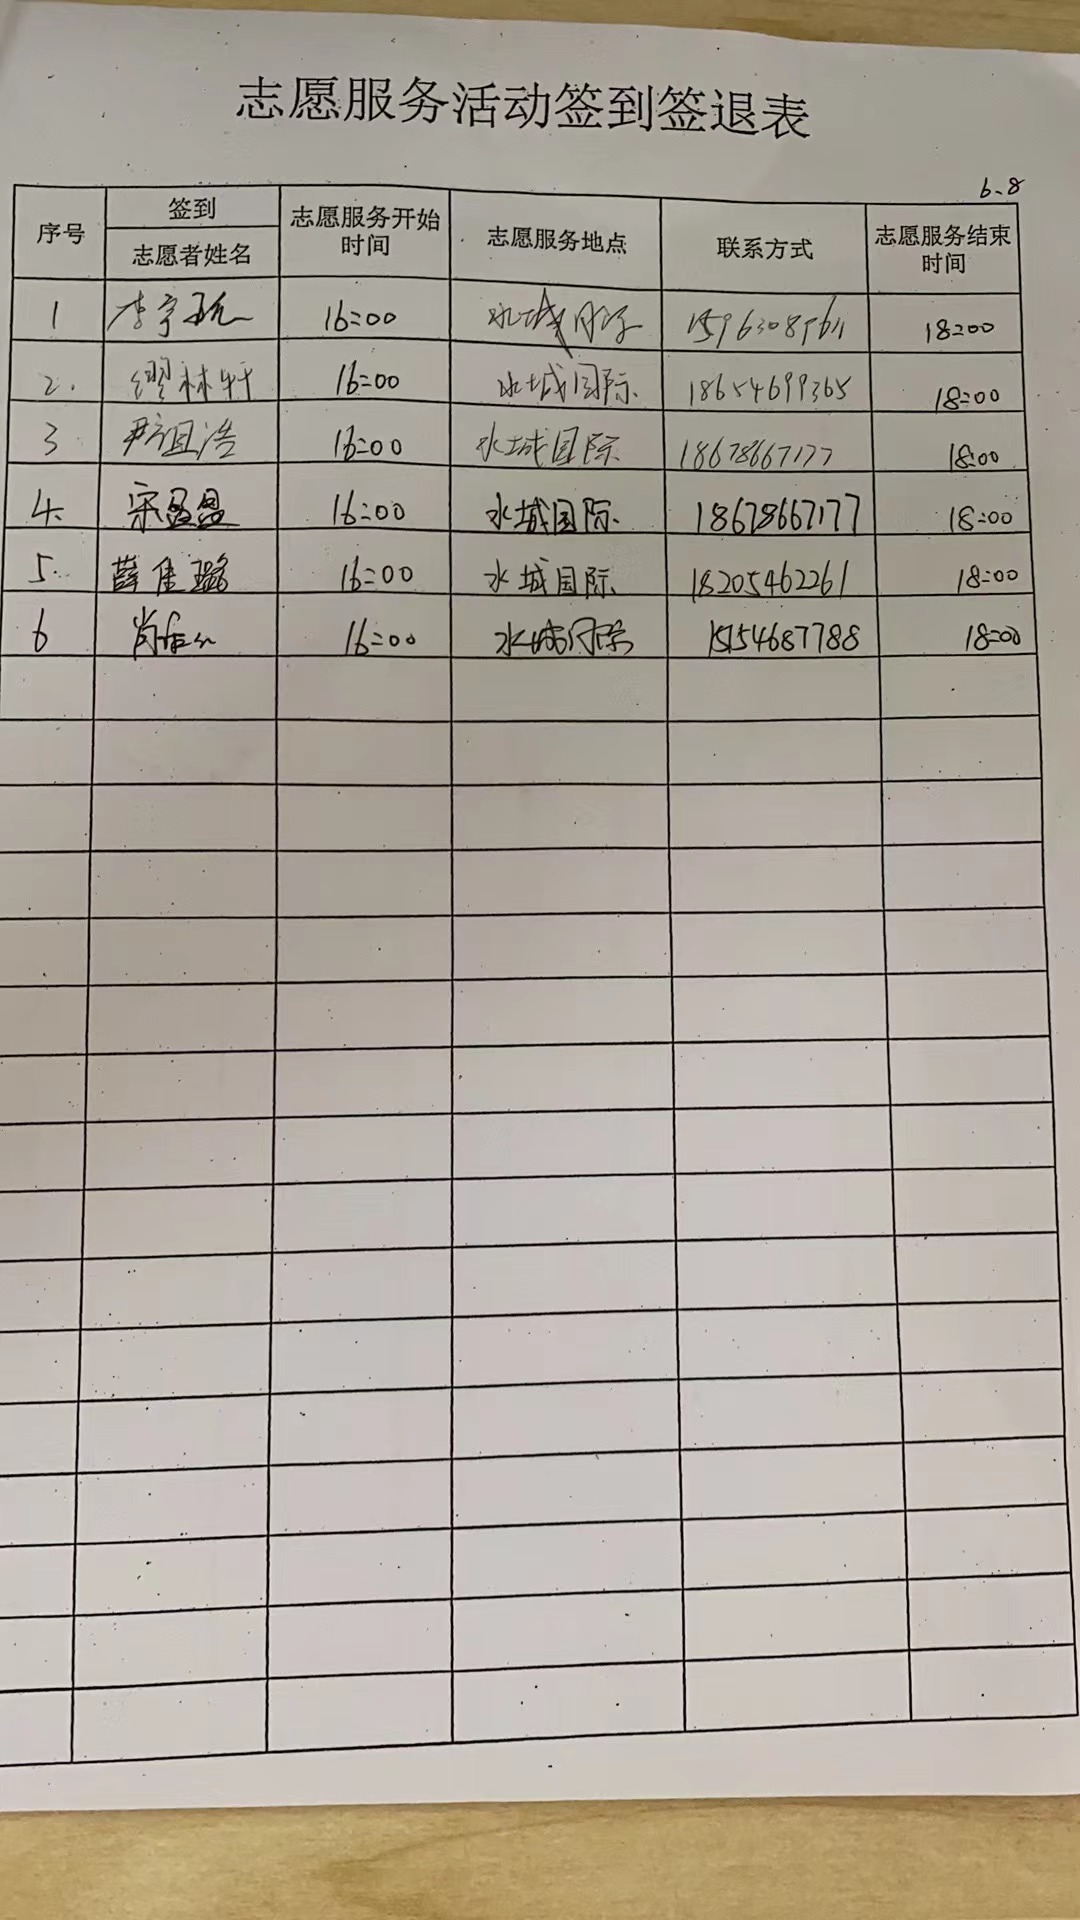 志愿服务活动签到签退表
6.8
序号 签到 志愿者姓名 志愿服务开始时间 志愿服务地点 联系方式 志愿服务结束时间
1 李宇 16:00 水城国际 18:00
2. 缪林轩 16:00 水城国际. 18654699365 18:00
3 宜浩 16:00 水城国际 18678667177 18:00
4. 宋盈盈 16:00 水城国际. 18678667177 18:00
5. 薛佳璐 16:00 水城国际. 18205462261 18:00
6 肖 16:00 水城国际 15154687788 18:00